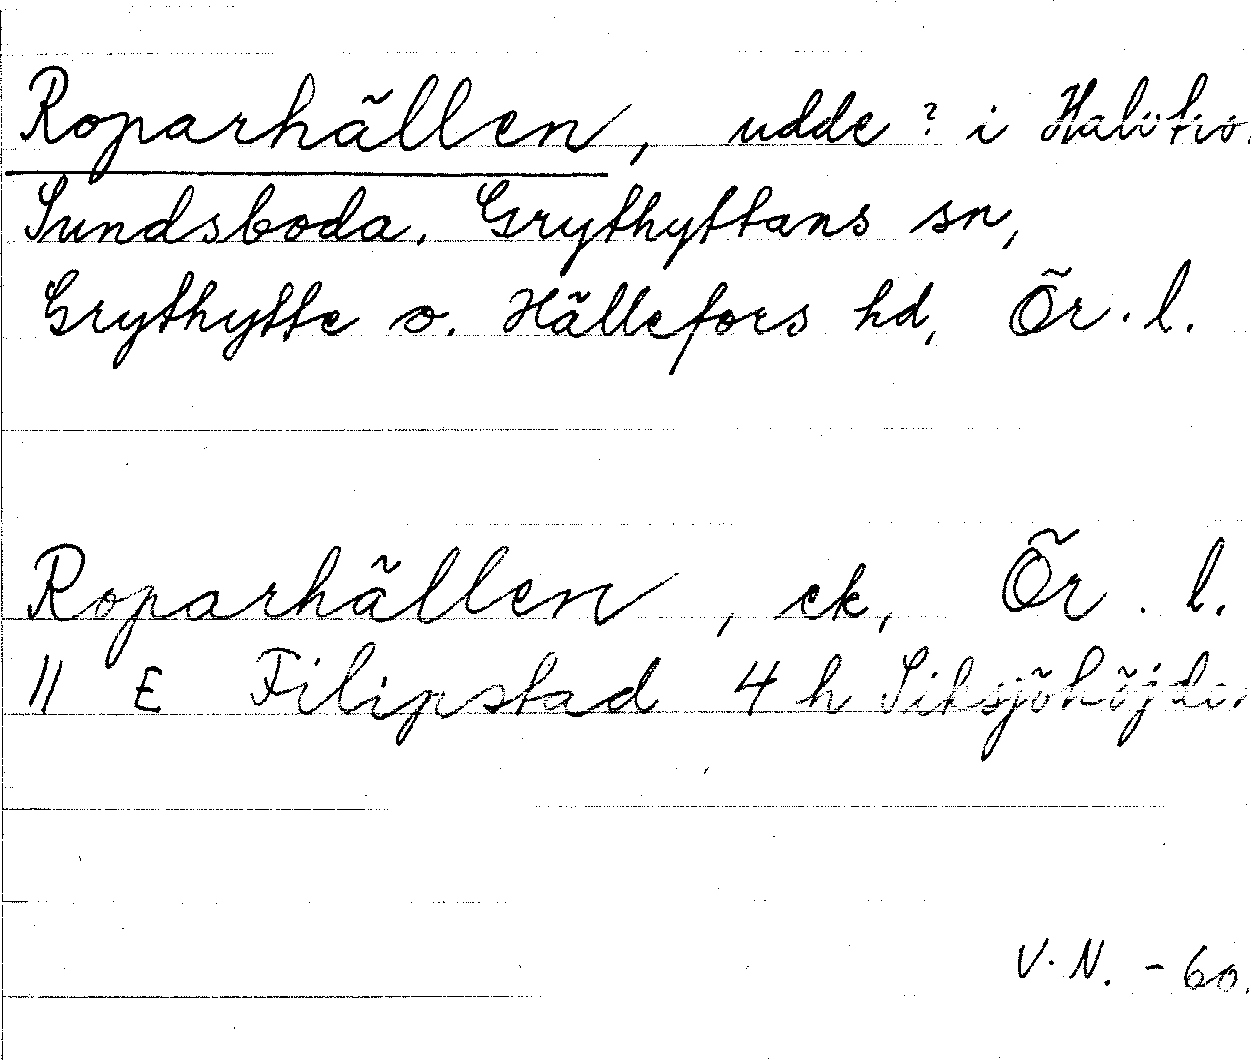 Roparhällen, udde? i Halvtrö.
Sundsboda, Grythyttans sn,
Grythytte o. Hällefors hd, Ör. l.
Roparhällen, ek, Ör. l.
11 E Filipstad 4 h Siksjöhöjden
V. N. -60.